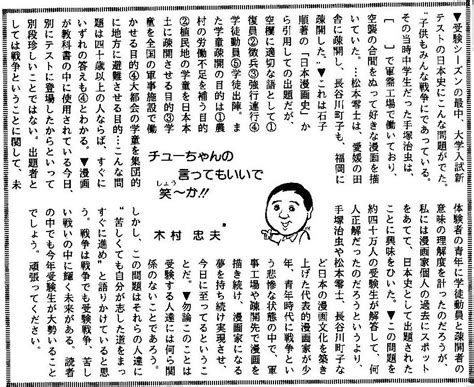 ▼受験シーズンの最中、大学入試新
テストの日本史にこんな問題がでた。
“子供もみんな戦争に”であっている。
その当時中学生だった手塚治虫は、
〔　〕で軍需工場で働いており、
空襲の合間をぬって好きな漫画を描
いていた。…松本零士は、愛媛の田
舎に疎開し、長谷川町子も、福岡に
疎開した。▼これは石子
順著の「日本漫画史」か
ら引用しての出題だが、
空欄に適切な語として①
復員②徴兵③強行連行④
学徒動員⑤学徒出陣。ま
た学童疎開の目的は①農
村の労働不足を補う目的
②植民地の学童を日本本
土に疎開させる目的③学
童を全国の軍事施設で働
かせる目的④大都会の学童を集団的
に地方に避難させる目的…こんな問
題は四十歳以上の人ならば、すぐに
いずれの答えも④とわかる。▼漫画
が教科書の中に使用されている今日、
別にテストに登場したからといって
別段珍しいことではない。出題者と
しては戦争ということに関して、未
チューちゃんの
言ってもいいで
笑〜か!!
しょう
木村忠夫
体験者の青年に学徒動員と疎開者の
意味の理解度を計ったのだろうが、
私には漫画家個人の過去にスポット
をあてて、日本史として出題された
ことに興味をひいた。▼この問題を
約四十万人の受験生が解答して、何
人正解だったのだろうというより、
手塚治虫や松本零士、長谷川町子な
ど日本の漫画文化を築き
上げた代表的漫画家が少
年、青年時代に戦争とい
う悲惨な状態の中で、軍
事工場や疎開先で漫画を
描き続け、漫画家になる
夢を持ち続け実現させ、
今日に至ってるというこ
とだ。▼勿論このことは
受験する人達には何ら関
係のないことであろう。
しかし、この問題はそれらの人達に
“苦しくても自分が志した道をまっ
すぐに進め”と語りかけていると思
う。戦争は戦争でも受験戦争、苦し
い戦いの中に輝く未来がある。読者
の中でも今年受験生が大勢いること
でしょう。頑張ってください。